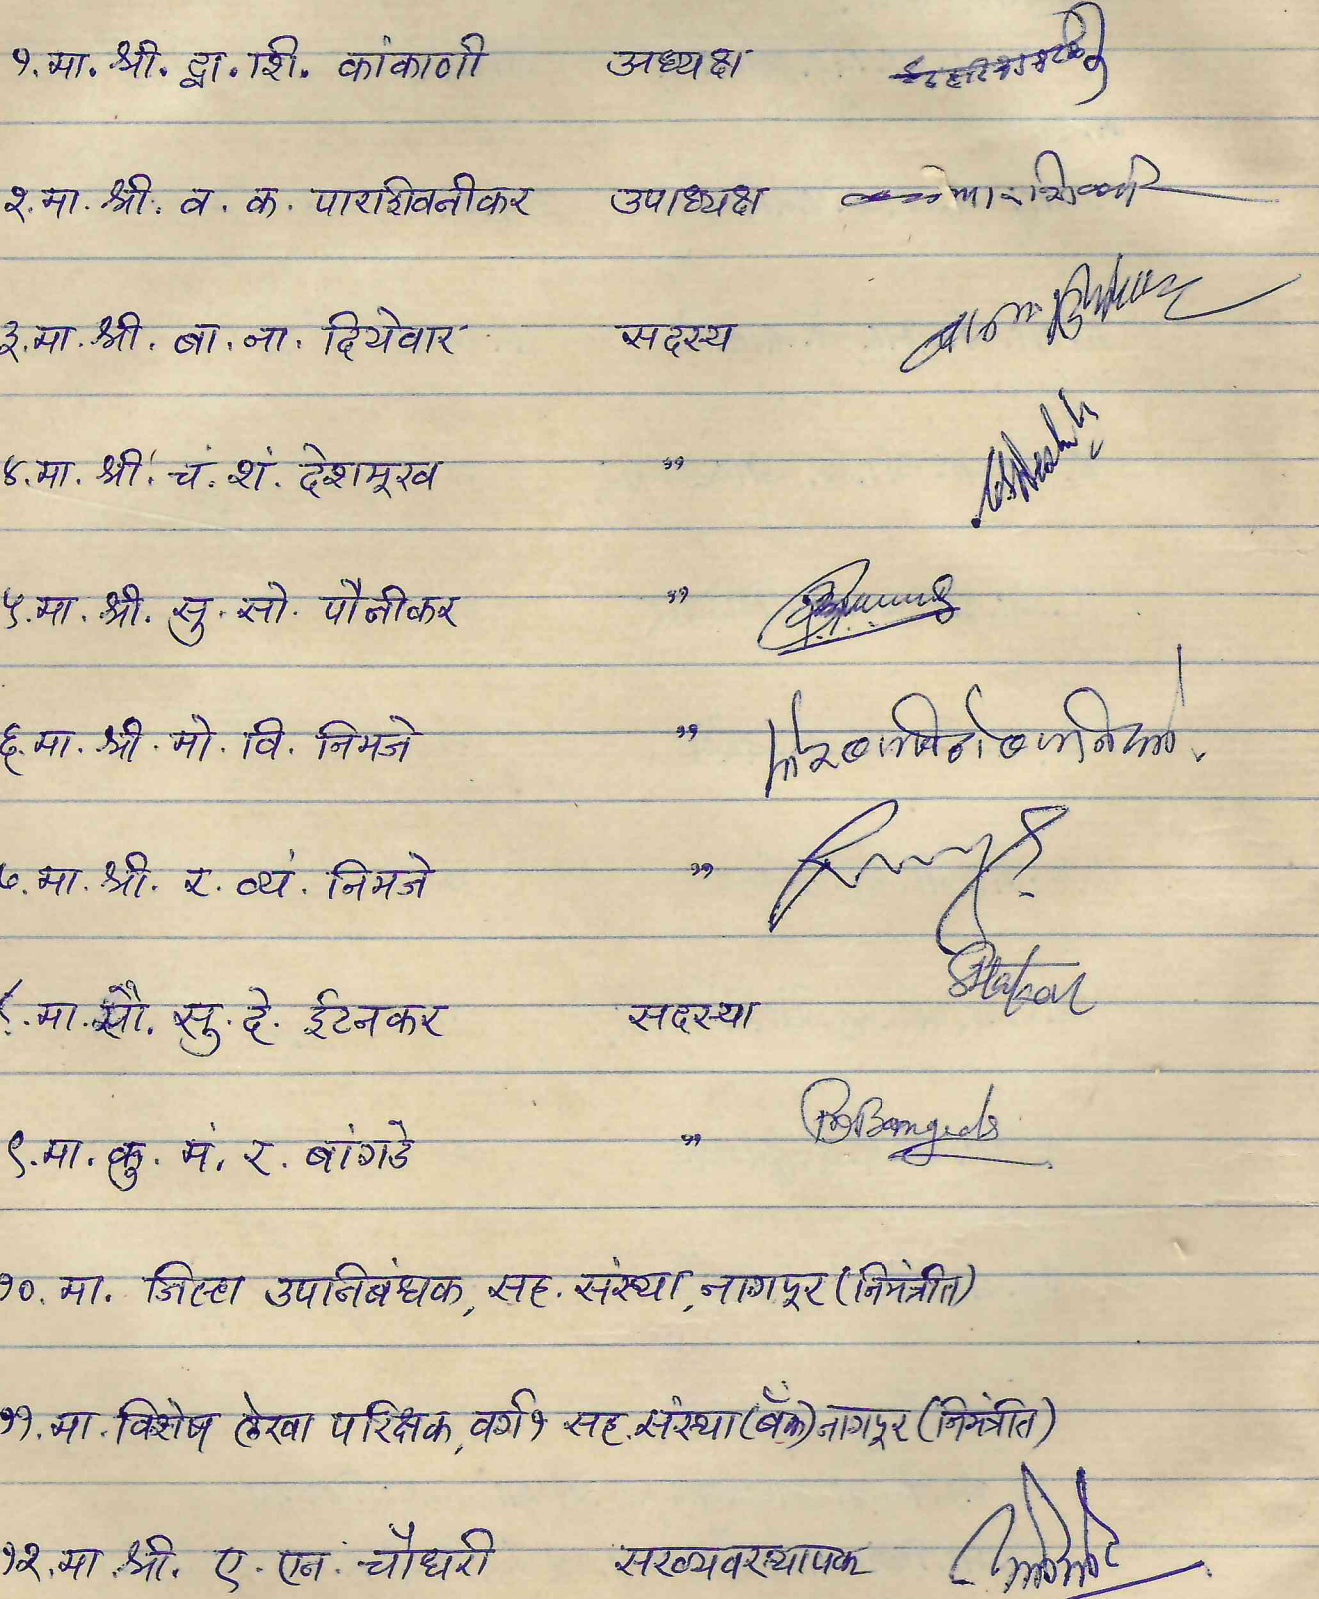 १. मा. श्री. द्वा. शि. कांकाणी अध्यक्ष
२. मा. श्री. व. क. पाराशिवनीकर उपाध्यक्ष
३. मा. श्री. बा. ना. दियेवार सदस्य
४. मा. श्री. चं. शं. देशमूख "
५. मा. श्री. सु. सो. पौनीकर "
६. मा. श्री. मो. वि. निमजे "
७. मा. श्री. र. व्यं. निमजे "
८. मा. सौ. सु. दे. ईटनकर सदस्या
९. मा. कु. मं. र. बांगडे " Bangade
१०. मा. जिल्हा उपनिबंधक, सह. संस्था, नागपूर (निमंत्रीत)
११. मा. विशेष लेखा परिक्षक, वर्ग १ सह. संस्था (बँक) नागपूर (निमंत्रीत)
१२. मा. श्री. ए. एन. चौधरी सरव्यवस्थापक